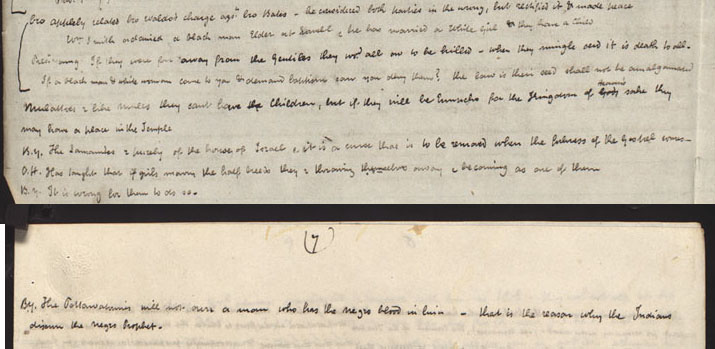 bro appleby relates bro waldo's charge agst bro Bates - he considered both parties in the wrong, but rectified it & made peace
Wm. Smith ordained a black man Elder at Lowell & he has married a white girl & they have a child
Prest. Young If they were far away from the Gentiles they wod. all ow to be killed - when they mingle seed it is death to all.
If a black man & white woman come to you & demand baptism can you deny them? the law is their seed shall not be amalgamated
Mulattoes r like mules they cant have the Children, but if they will be Eunuchs for the Kingdom of Heaven's Gods sake they
may have a place in the Temple
B.Y. The Lamanites r purely of the house of Israel & it is a curse that is to be removed when the fulness of the Gospel comes -
O.H. Has taught that if girls marry the half breeds they r throwing themselves away & becoming as one of them
B.Y. It is wrong for them to do so.
(7)
By. The Pottawatamies will not own a man who has the negro blood in him - that is the reason why the Indians
disown the negro prophet.